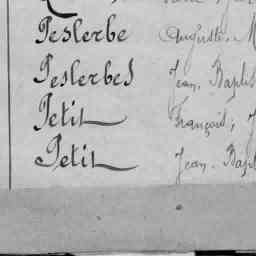 Peslerbe Auguste, M
Peslerbes Jean, Baptis
Petit François, J
Petit Jean-Bapt